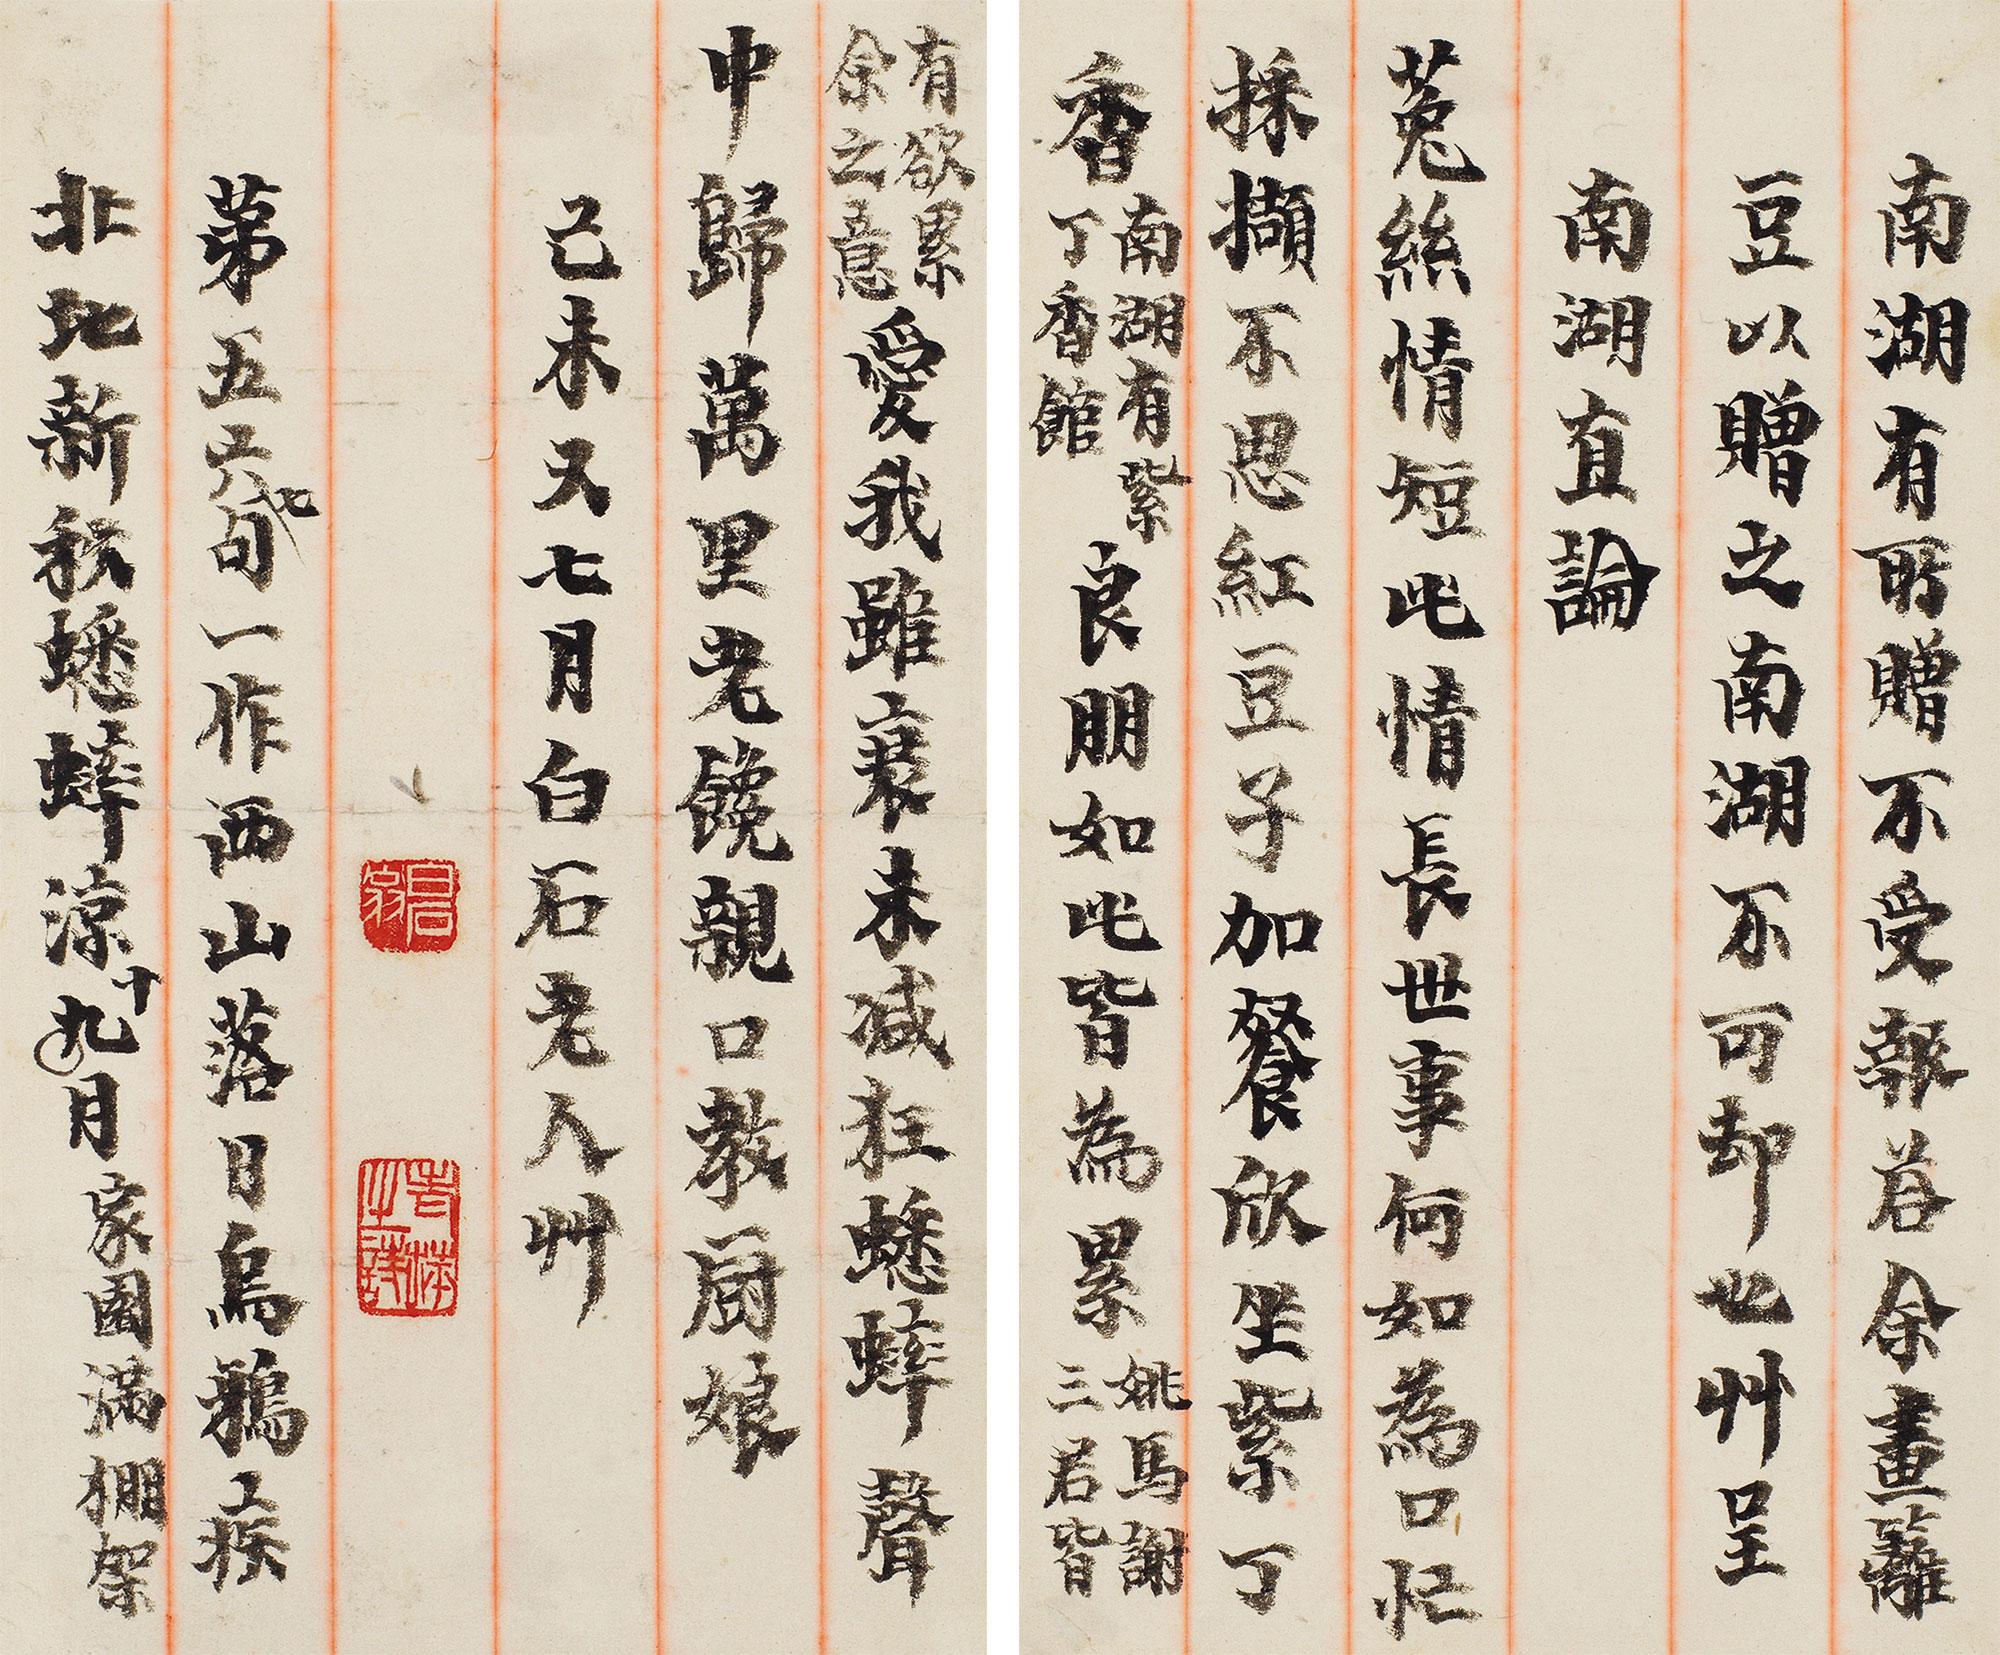 南湖有所贈不受報荅余畫籬
豆以贈之南湖不可却也艸呈
南湖直論
菟絲情短此情長世事何如為口忙
採擷不思紅豆子加餐欣坐紫丁
香南湖有紫丁香館良朋如此皆為累姚馬謝三君皆
有欲累余之意愛我雖衰未減狂蟋蟀聲
中歸萬里老饞親口教厨娘
己未又七月白石老人艸
白石翁
老萍之詩
第五六七句一作西山落日烏鴉疾
北地新秋蟋蟀涼十月家園滿棚架